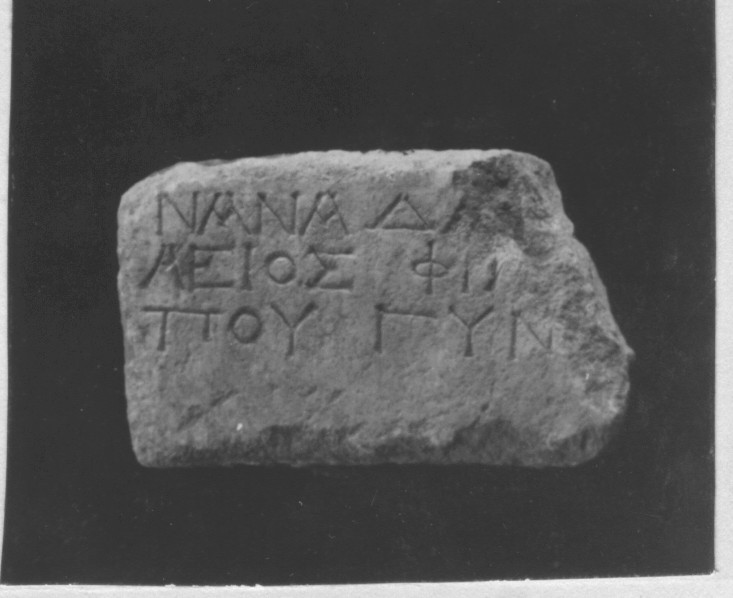 ΝΑΝΑ ΔΑ
ΑΕΙΟΣ ΦΙ
ΠΟΥ ΓΥΝ